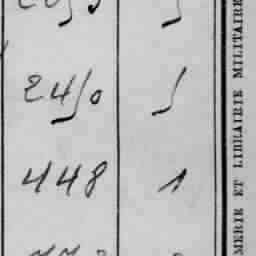 2450 5
448 1
MERIE ET LIBRAIRIE MILITAIRE